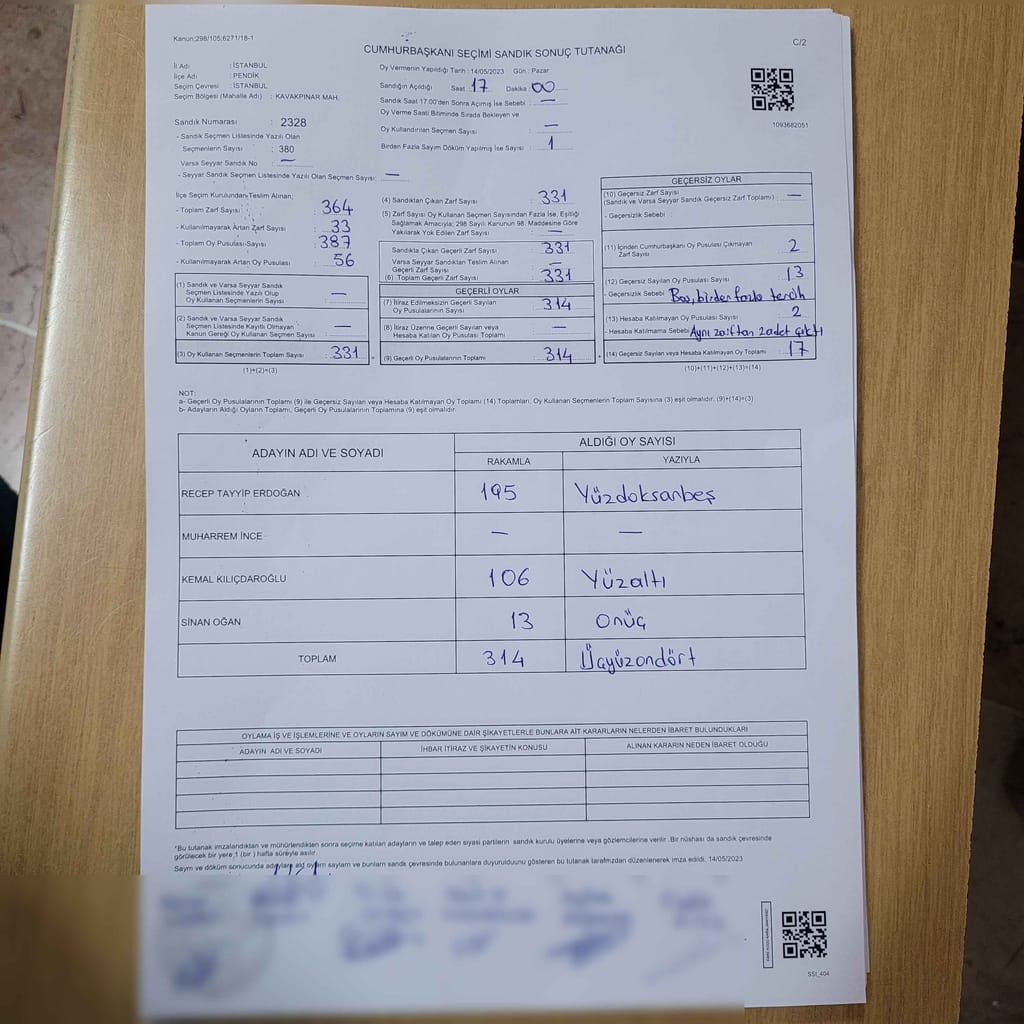 Kanun:298/105;6271/18-1
CUMHURBAŞKANI SEÇİMİ SANDIK SONUÇ TUTANAĞI
C/2
İl Adı : İSTANBUL
İlçe Adı : PENDİK
Seçim Çevresi : İSTANBUL
Seçim Bölgesi (Mahalle Adı) : KAVAKPINAR MAH.
Sandık Numarası : 2328
- Sandık Seçmen Listesinde Yazılı Olan
Seçmenlerin Sayısı : 380
Varsa Seyyar Sandık No : —
- Seyyar Sandık Seçmen Listesinde Yazılı Olan Seçmen Sayısı: —
Oy Vermenin Yapıldığı Tarih : 14/05/2023 Gün : Pazar
Sandığın Açıldığı Saat : 17 Dakika : 00
Sandık Saat 17:00'den Sonra Açımış İse Sebebi : —
Oy Verme Saati Bitiminde Sırada Bekleyen ve
Oy Kullandırılan Seçmen Sayısı : —
Birden Fazla Sayım Döküm Yapılmış İse Sayısı : 1
1093682051
İlçe Seçim Kurulundan Teslim Alınan;
- Toplam Zarf Sayısı : 364
- Kullanılmayarak Artan Zarf Sayısı : 33
- Toplam Oy Pusulası Sayısı : 387
- Kullanılmayarak Artan Oy Pusulası : 56
(1) Sandık ve Varsa Seyyar Sandık
Seçmen Listesinde Yazılı Olup
Oy Kullanan Seçmenlerin Sayısı : —
(2) Sandık ve Varsa Seyyar Sandık
Seçmen Listesinde Kayıtlı Olmayan
Kanun Gereği Oy Kullanan Seçmen Sayısı : —
(3) Oy Kullanan Seçmenlerin Toplam Sayısı : 331
(1)+(2)=(3)
(4) Sandıktan Çıkan Zarf Sayısı : 331
(5) Zarf Sayısı Oy Kullanan Seçmen Sayısından Fazla İse, Eşitliği
Sağlamak Amacıyla; 298 Sayılı Kanunun 98. Maddesine Göre
Yakılarak Yok Edilen Zarf Sayısı : —
Sandıkta Çıkan Geçerli Zarf Sayısı : 331
Varsa Seyyar Sandıktan Teslim Alınan
Geçerli Zarf Sayısı : —
(6) Toplam Geçerli Zarf Sayısı : 331
GEÇERLİ OYLAR
(7) İtiraz Edilmeksizin Geçerli Sayılan
Oy Pusulası Sayısı : 314
(8) İtiraz Üzerine Geçerli Sayılan veya
Hesaba Katılan Oy Pusulası Toplamı : —
(9) Geçerli Oy Pusulalarının Toplamı : 314
GEÇERSİZ OYLAR
(10) Geçersiz Zarf Sayısı : —
(Sandık ve Varsa Seyyar Sandık Geçersiz Zarf Toplamı)
- Geçersizlik Sebebi :
(11) İçinden Cumhurbaşkanı Oy Pusulası Çıkmayan
Zarf Sayısı : 2
(12) Geçersiz Sayılan Oy Pusulası Sayısı : 13
- Geçersizlik Sebebi : Boş, birden fazla tercih
(13) Hesaba Katılmayan Oy Pusulası Sayısı : 2
- Hesaba Katılmama Sebebi : Aynı zarftan 2 adet çıktı
(14) Geçersiz Sayılan veya Hesaba Katılmayan Oy Toplamı : 17
(10)+(11)+(12)+(13)=(14)
NOT:
a- Geçerli Oy Pusulalarının Toplamı (9) ile Geçersiz Sayılan veya Hesaba Katılmayan Oy Toplamı (14) Toplamları, Oy Kullanan Seçmenlerin Toplam Sayısına (3) eşit olmalıdır. (9)+(14)=(3)
b- Adayların Aldığı Oyların Toplamı, Geçerli Oy Pusulalarının Toplamına (9) eşit olmalıdır.
ADAYIN ADI VE SOYADI
ALDIĞI OY SAYISI
RAKAMLA YAZIYLA
RECEP TAYYİP ERDOĞAN 195 Yüzdoksanbeş
MUHARREM İNCE — —
KEMAL KILIÇDAROĞLU 106 Yüzaltı
SİNAN OĞAN 13 Onüç
TOPLAM 314 Üçyüzondört
OYLAMA İŞ VE İŞLEMLERİNE VE OYLARIN SAYIM VE DÖKÜMÜNE DAİR ŞİKAYETLERLE BUNLARA AİT KARARLARIN NELERDEN İBARET BULUNDUKLARI
ADAYIN ADI VE SOYADI İHBAR İTİRAZ VE ŞİKAYETİN KONUSU ALINAN KARARIN NEDEN İBARET OLDUĞU
*Bu tutanak imzalandıktan ve mühürlendikten sonra seçime katılan adayların ve talep eden siyasi partilerin sandık kurulu üyelerine veya gözlemcilerine verilir. Bir nüshası da sandık çevresinde
görülecek bir yere 1 (bir ) hafta süreyle asılır.
Sayım ve döküm sonucunda adayların aldığı oyların sayılarını ve bunların sandık çevresinde bulunanlara duyurulduğunu gösteren bu tutanak tarafımızdan düzenlenerek imza edildi. 14/05/2023
SSI_404